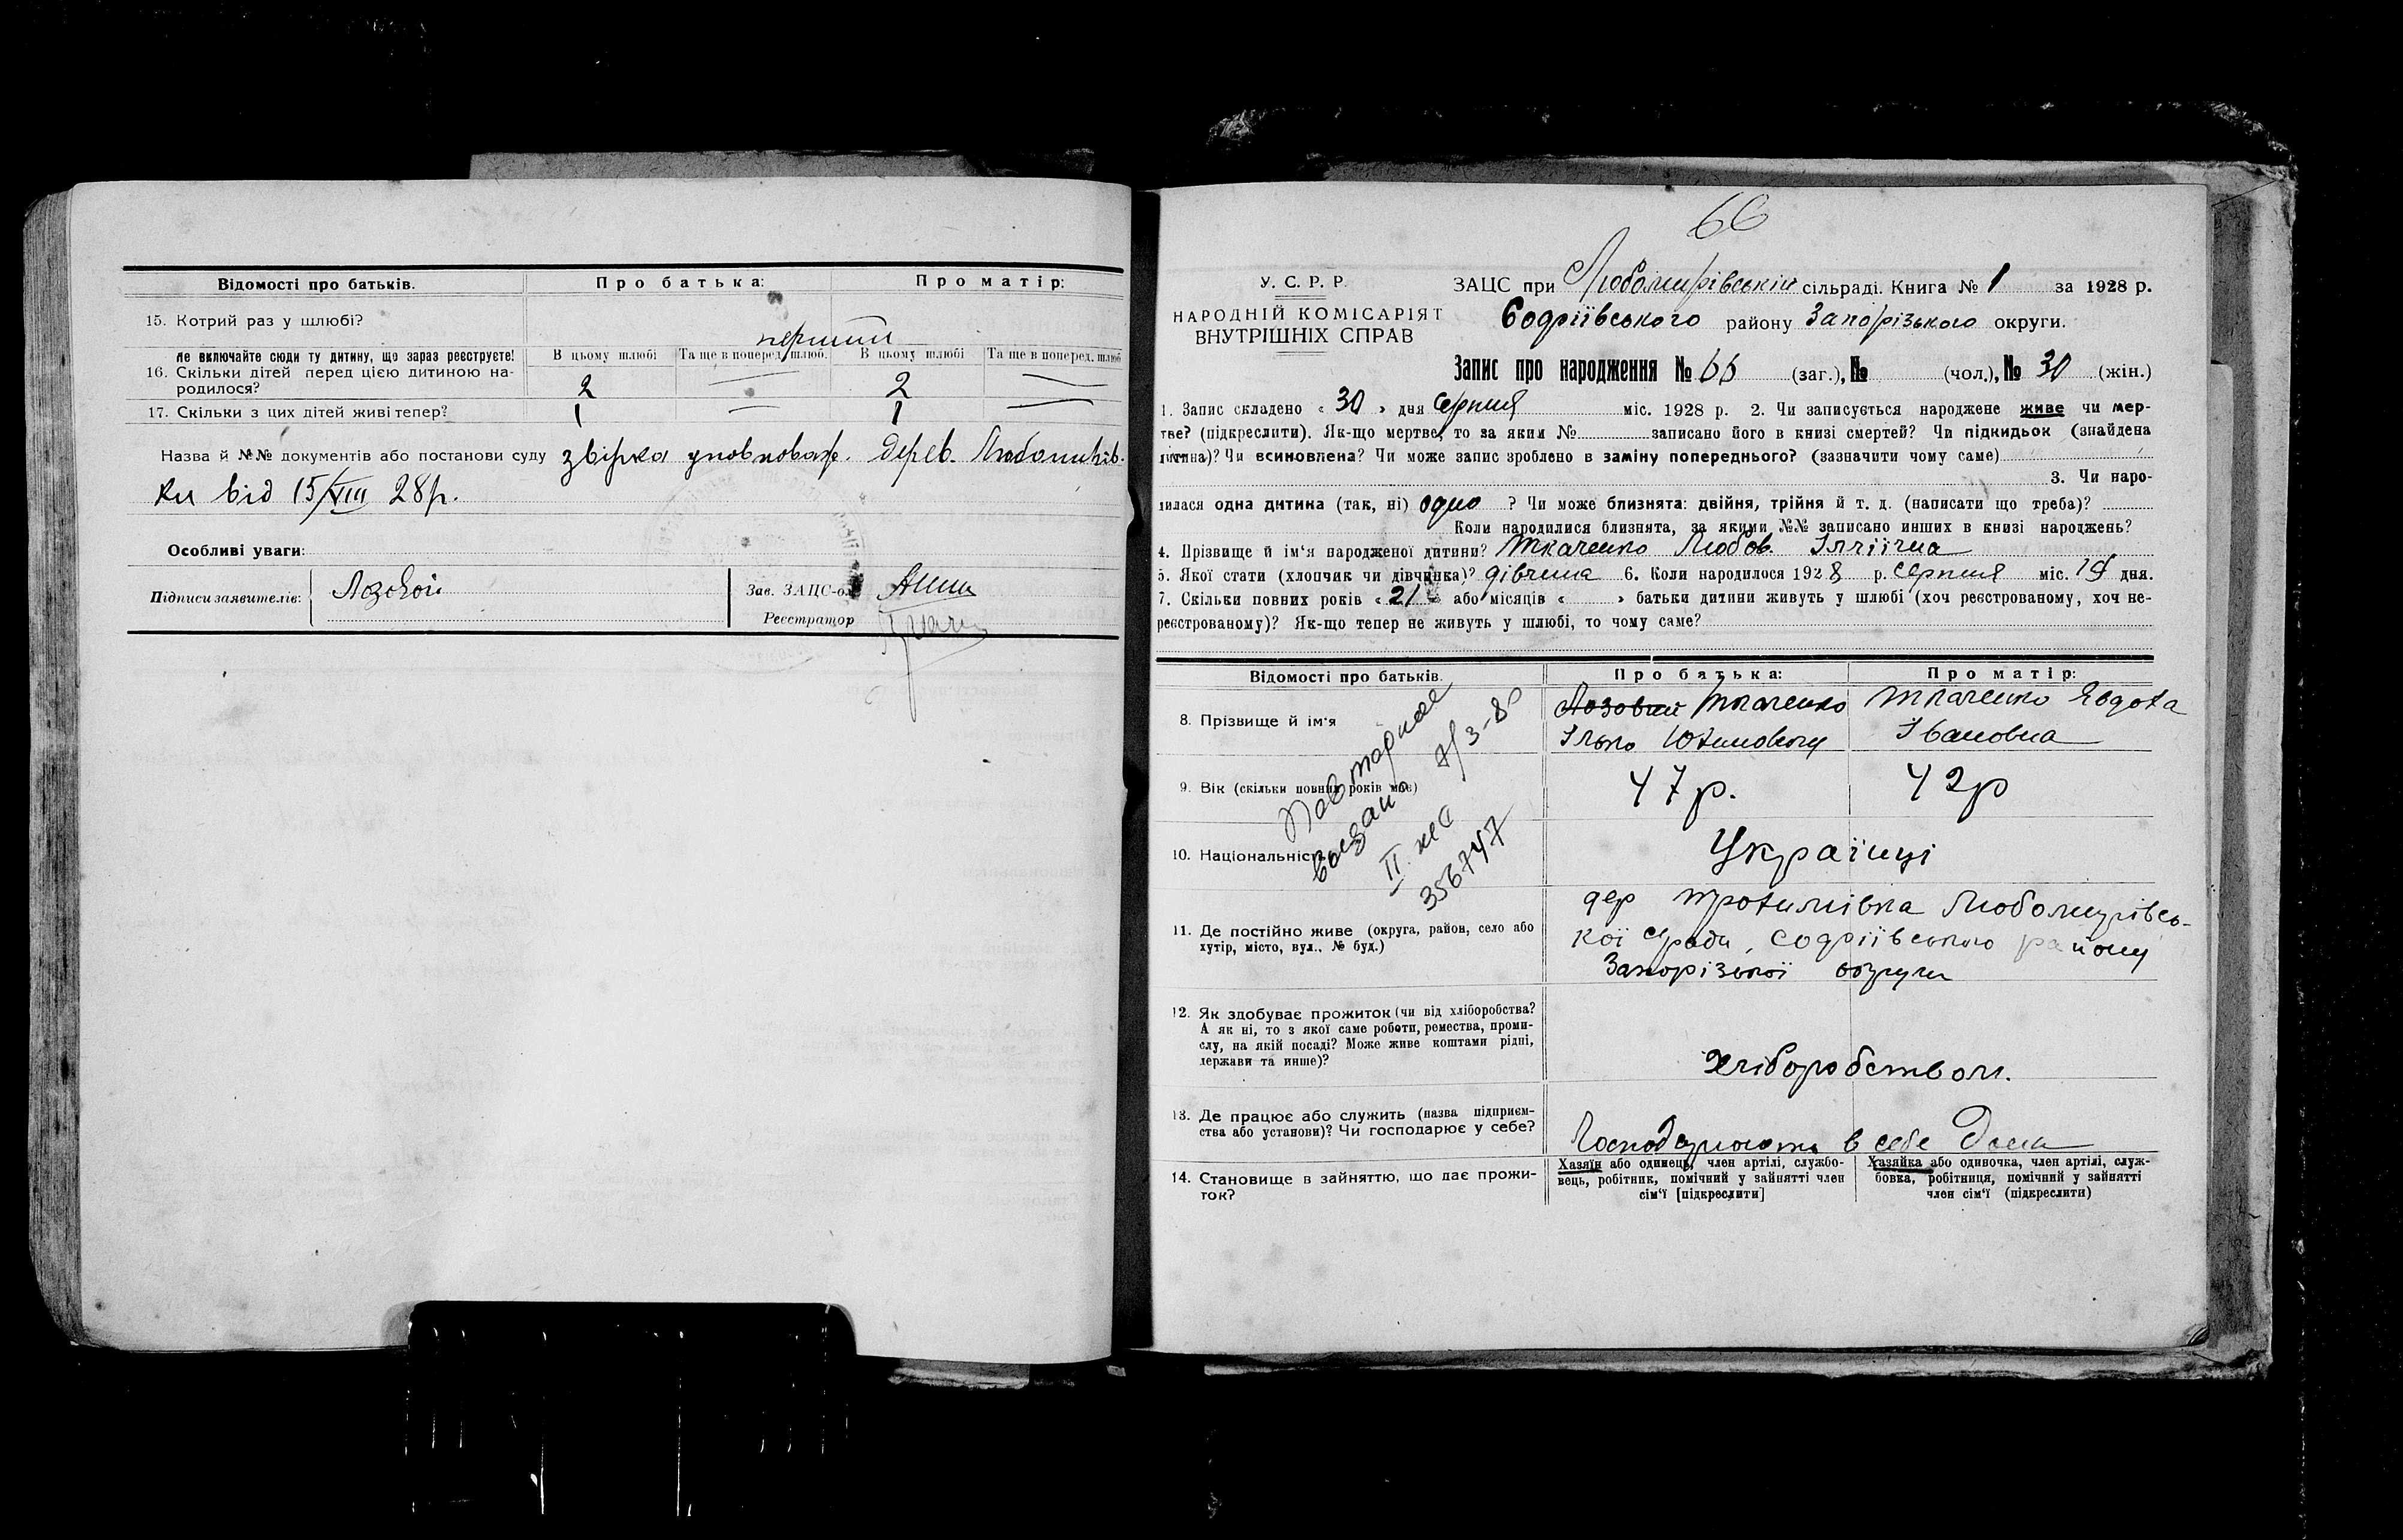 Відомості про батьків. Про батька: Про матір:
15. Котрий раз у шлюбі? перший
не включайте сюди ту дитину, що зараз реєструєте! В цьому шлюбі Та ще в поперед. шлюб. В цьому шлюбі Та ще в поперед. шлюб
16. Скільки дітей перед цією дитиною на-
родилося? 2 — 2 —
17. Скільки з цих дітей живі тепер? 1 — 1 —
Назва й №№ документів або постанови суду звірка уповноваж. дерев.
ки від 15/VIII 28р.
Особливі уваги:
Підписи заявителів: Лозовой
Зав. ЗАЦС-ом
Реєстратор
66
У. С. Р. Р.
НАРОДНІЙ КОМІСАРІЯТ
ВНУТРІШНІХ СПРАВ
ЗАЦС при Любомирівській сільраді. Книга № 1 за 1928 р.
Софіївського району Запорізького округи.
Запис про народження № 66 (заг.), № (чол.), № 30 (жін.)
1. Запис складено « 30 » дня Серпня міс. 1928 р. 2. Чи записується народжене живе чи мер-
тве? (підкреслити). Як-що мертве, то за яким № записано його в книзі смертей? Чи підкидьок (знайдена
дитина)? Чи всиновлена? Чи може запис зроблено в заміну попереднього? (зазначити чому саме)
3. Чи наро-
дилася одна дитина (так, ні) одно ? Чи може близнята: двійня, трійня й т. д. (написати що треба)?
Коли народилися близнята, за якими №№ записано инших в книзі народжень?
4. Прізвище й ім'я народженої дитини? Ткаченко Любов Іллічна
5. Якої стати (хлопчик чи дівчинка)? дівчина 6. Коли народилося 1928 р. Серпня міс. 15 дня.
7. Скільки повних років « 21 » або місяців « » батьки дитини живуть у шлюбі (хоч реєстрованому, хоч не-
реєстрованому)? Як-що тепер не живуть у шлюбі, то чому саме?
Відомості про батьків. Про батька: Про матір:
8. Прізвище й ім'я Лозовий Ткаченко Ткаченко Евдоха
Ілько Юхимович Івановна
9. Вік (скільки повних років має) 47 р. 42 р
Повторное
выдано 3-80
II
356747
10. Національність Українці
11. Де постійно живе (округа, район, село або
хутір, місто, вул., № буд.)
дер Трохимівка Любомирівсь-
кої с/ради, Софіївського району
Запорізької округи
12. Як здобуває прожиток (чи від хліборобства?
А як ні, то з якої саме роботи, ремества, проми-
слу, на якій посаді? Може живе коштами рідні,
держави та инше)?
Хліборобством.
13. Де працює або служить (назва підприєм-
ства або установи)? Чи господарює у себе?
Господарюють в себе дома
14. Становище в зайняттю, що дає прожи-
ток?
Хазяїн або одинець, член артілі, службо-
вець, робітник, помічний у зайнятті член
сім'ї [підкреслити]
Хазяйка або одиночка, член артілі, служ-
бовка, робітниця, помічний у зайнятті
член сім'ї (підкреслити)